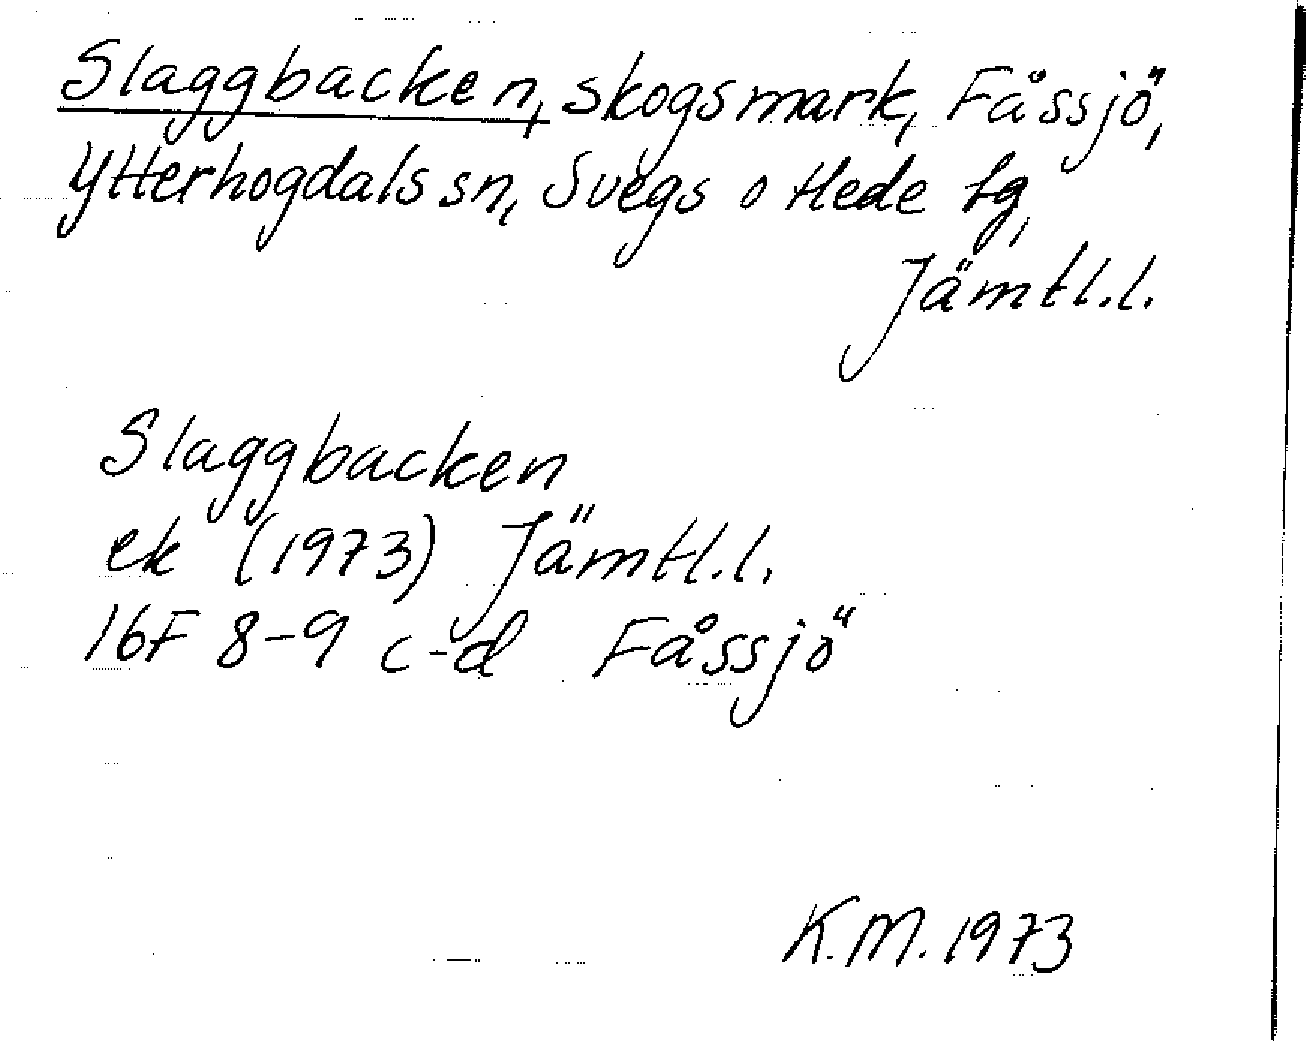 Slaggbacken, skogsmark, Fåssjö,
Ytterhogdals sn, Svegs o Hede tg,
Jämtl.l.
Slaggbacken
ek (1973) Jämtl.l.
16F 8-9 c-d Fåssjö
K.M. 1973